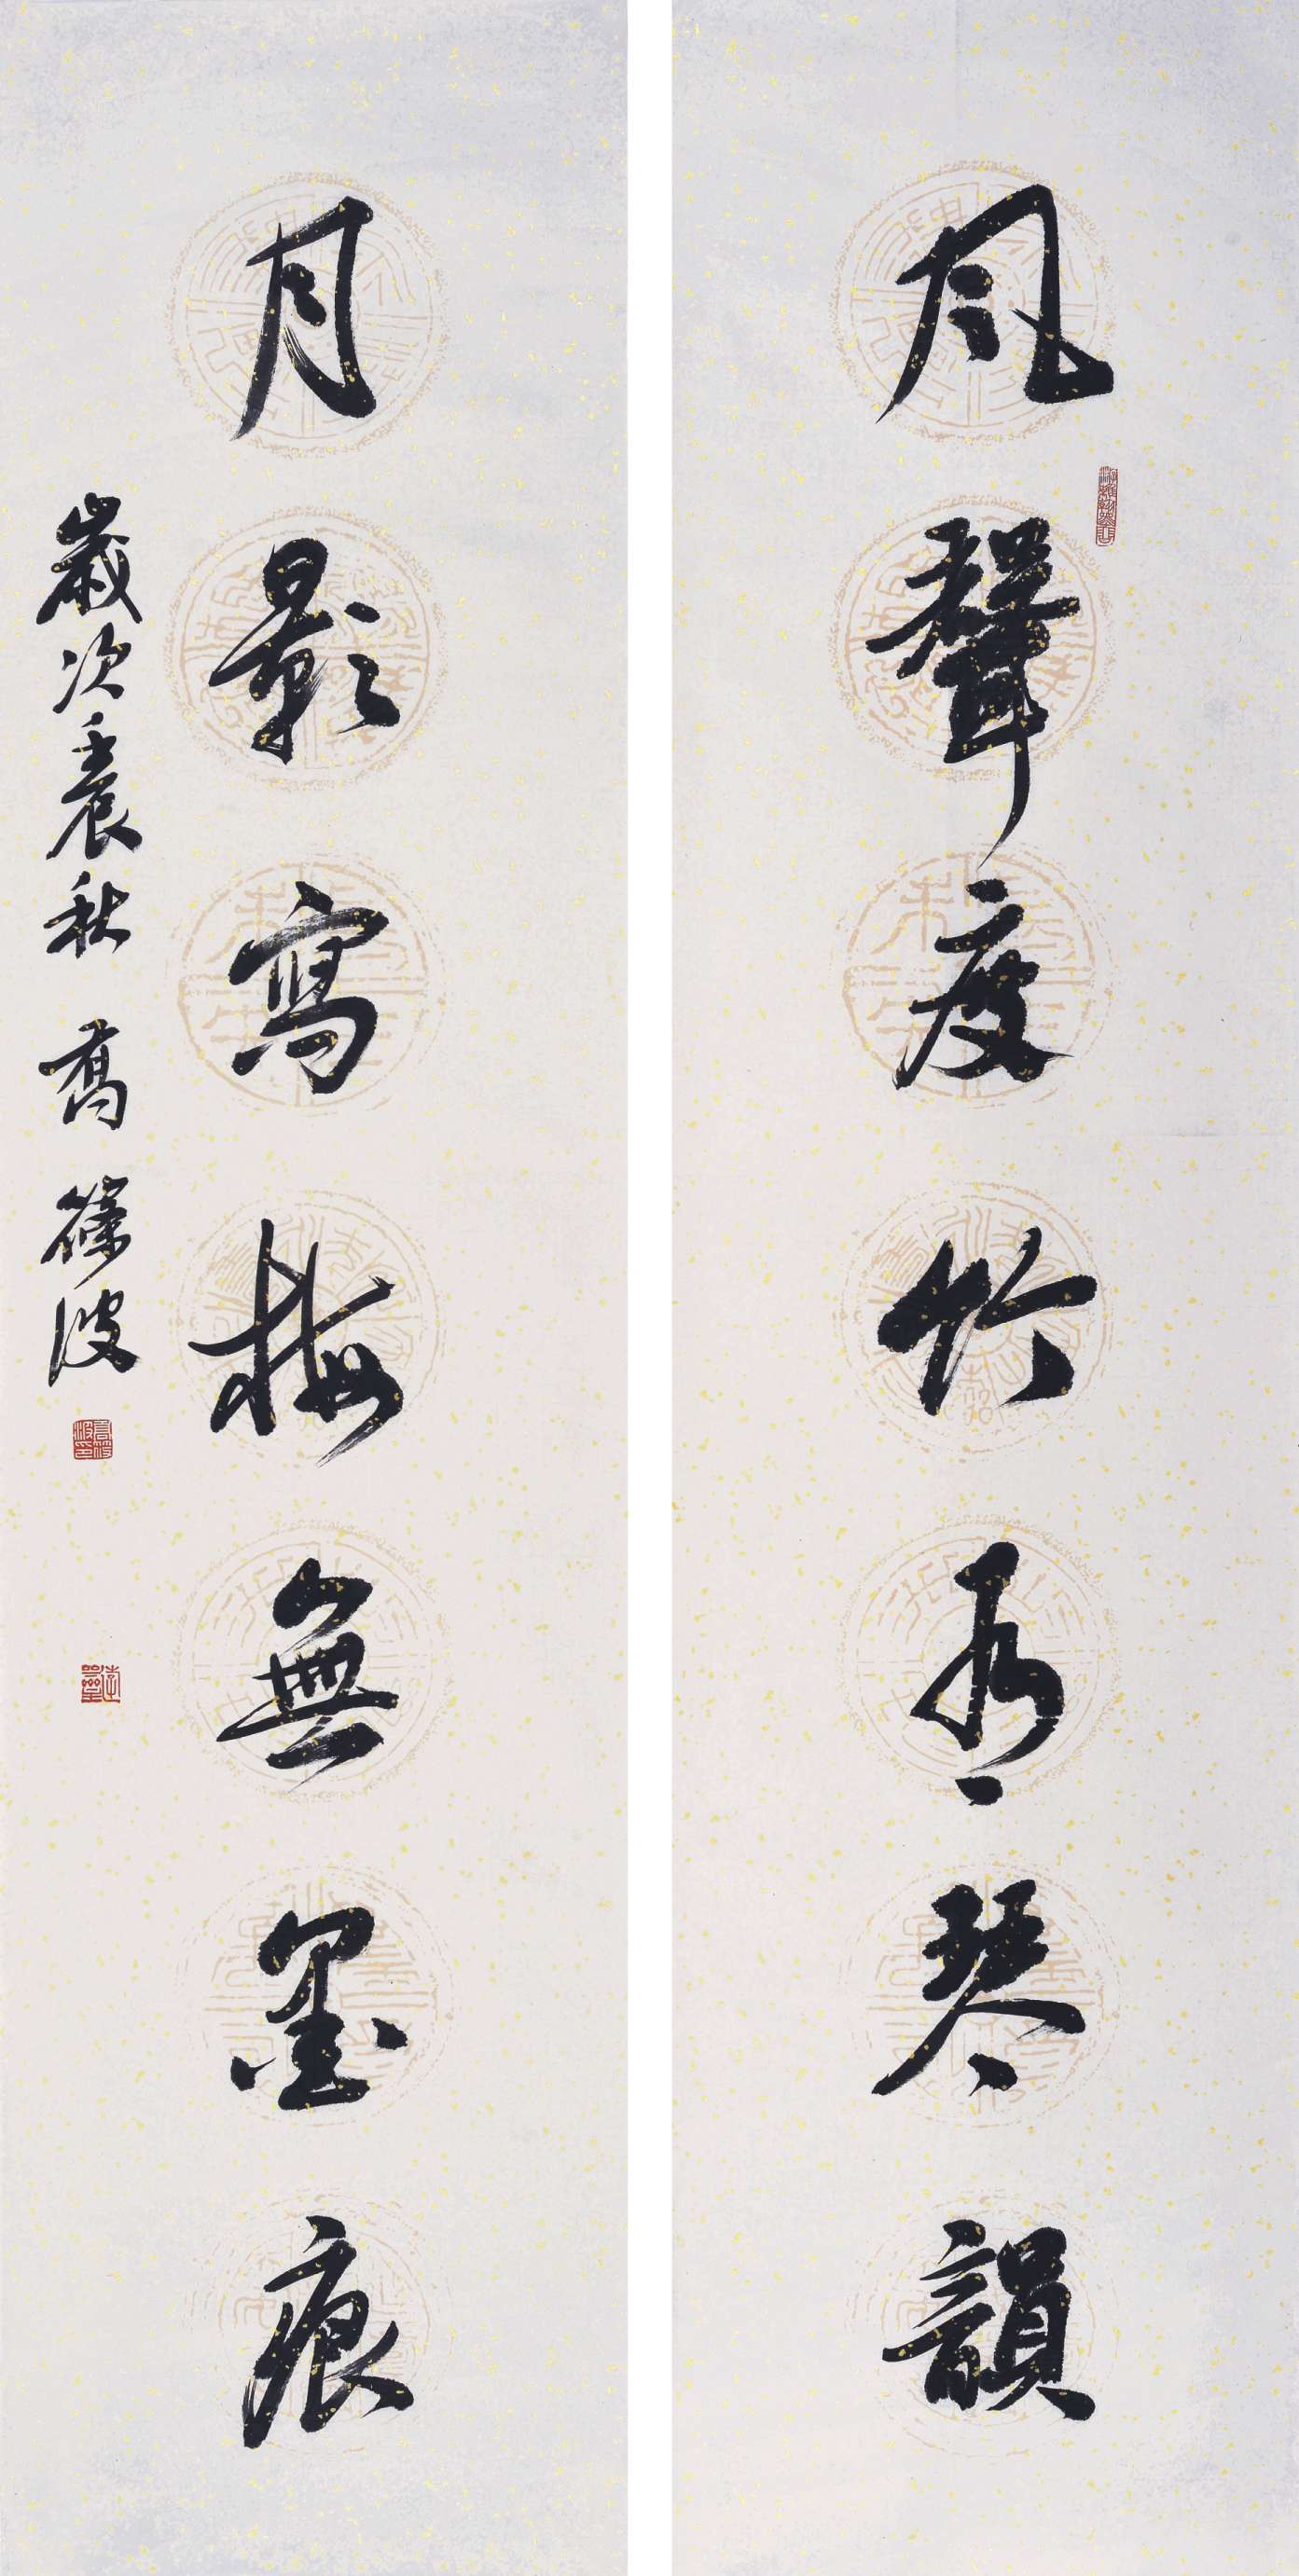 風聲度竹有琴韻
月影寫梅無墨痕
歲次壬辰秋 高篠波